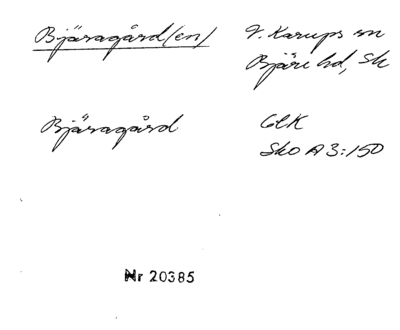 Bjäragård(en)
V. Karups sn
Bjäre hd, Sk
Bjäragård
GEK
Sko A 3:150
Nr 20385